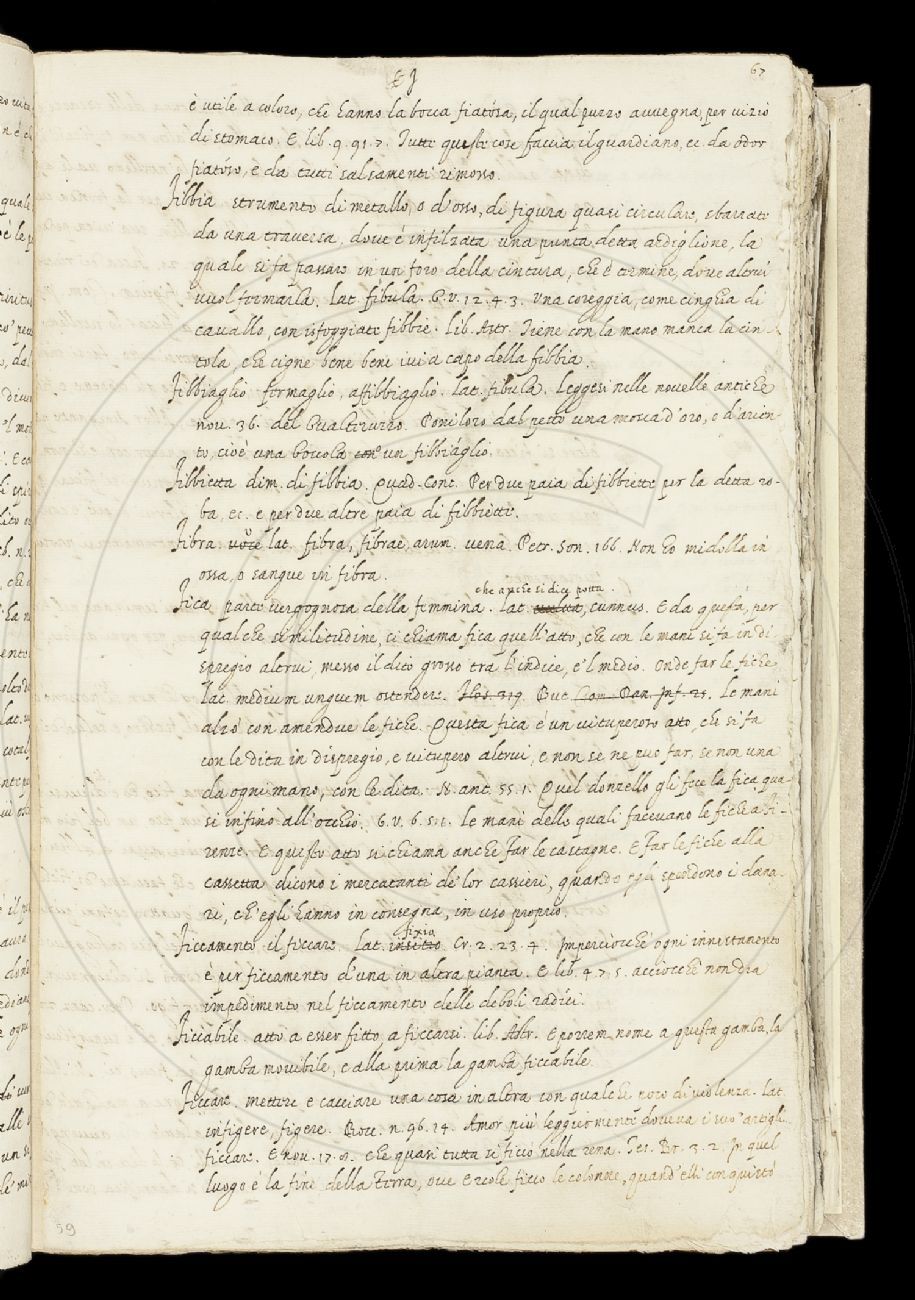 67
FJ
è utile a coloro, che hanno la bocca fiatósa, il qual puzzo avvegna, per vizio
di stomaco. E lib. 9. 91. 2. Tutte queste cose faccia il guardiano, ec. da odor
fiatóso, e da tutti salsamenti rimosso.
Fibbia strumento di metallo, o d'osso, di figura quasi circulare, sbarrato
da una traversa, dove é infilzata una punta detta ardiglione, la
quale si fa passare in un foro della cintura, che è termine, dove altrui
vuol fermarla. Lat. fibula. G. V. 12. 4. 3. Una coreggia, come cinghia di
cavallo, con isfoggiate fibbie. lib. Astr. Tiene con la mano manca la cin-
tola, che cigne bene bene ivi a capo della fibbia.
Fibbiaglio formaglio, affibbiaglio. lat. fibula. Leggesi nelle novelle antiche
nov. 36. del Gualteruzzo. Poni loro dal petto una mosca d'oro, o d'arien-
to, cioè una boccola con un fibbiáglio.
Fibbietta dim. di fibbia. Quad. Cont. Per due paia di fibbiette per la detta ro-
ba, ec. e per due altre paia di fibbiette.
Fibra. voce lat. fibra, fibrae arum. vena. Petr. Son. 166. Non ho midolla in
ossa, o sangue in fibra.
che anche si dice potta.
Fica parte vergognosa della femmina. Lat. vulva, cunnus. E da questa, per
qualche similitudine, si chiama fica quell'atto, che con le mani si fa in di
spregio altrui, messo il dito grosso tra l'indice, e 'l medio. Onde far le fiche
Lat. medium unguem ostendere. 319. But. Dan. Inf. 25. Le mani
alzò con amendue le fiche. Questa fica é un vituperoso atto, che si fa
con le dita in dispregio, e vitupero altrui, e non se ne può far, se non una
da ogni mano, con le dita. N. ant. 55. 1. Quel donzello gli fece la fica qua-
si infino all'occhio. G. V. 6. 5. 1. Le mani delle quali facevano le fiche a Fi-
renze. E questo atto si chiama anche far le castagne. E far le fiche alla
cassetta dicono i mercatanti de' lor cassieri, quando egli spendono i dana-
ri, ch'egli hanno in consegna, in uso proprio.
fixio
Ficcamento il ficcare. Lat. insitio. Cr. 2. 23. 4. Imperciocchè ogni innestamento
è per ficcamento d'una in altra pianta. E lib. 4. 7. 5. acciocchè non dia
impedimento nel ficcamento delle deboli radici.
Ficcábile. atto a esser fitto, a ficcarsi. lib. Astr. E porrem nome a questa gamba, la
gamba movibile, e alla prima la gamba ficcabile.
Ficcare. mettere e cacciare una cosa in altra con qualche poco di violenza. Lat.
infigere, figere. Bocc. n. 96. 14. Amor più leggiermente doveva i suo' artigli
ficcare. E nov. 17. 8. che quasi tutta si ficcò nella rena. Tes. Br. 3. 2. In quel
luogo è la fine della Terra, ove Ercole ficcò le colonne, quand'elli conquistò
59